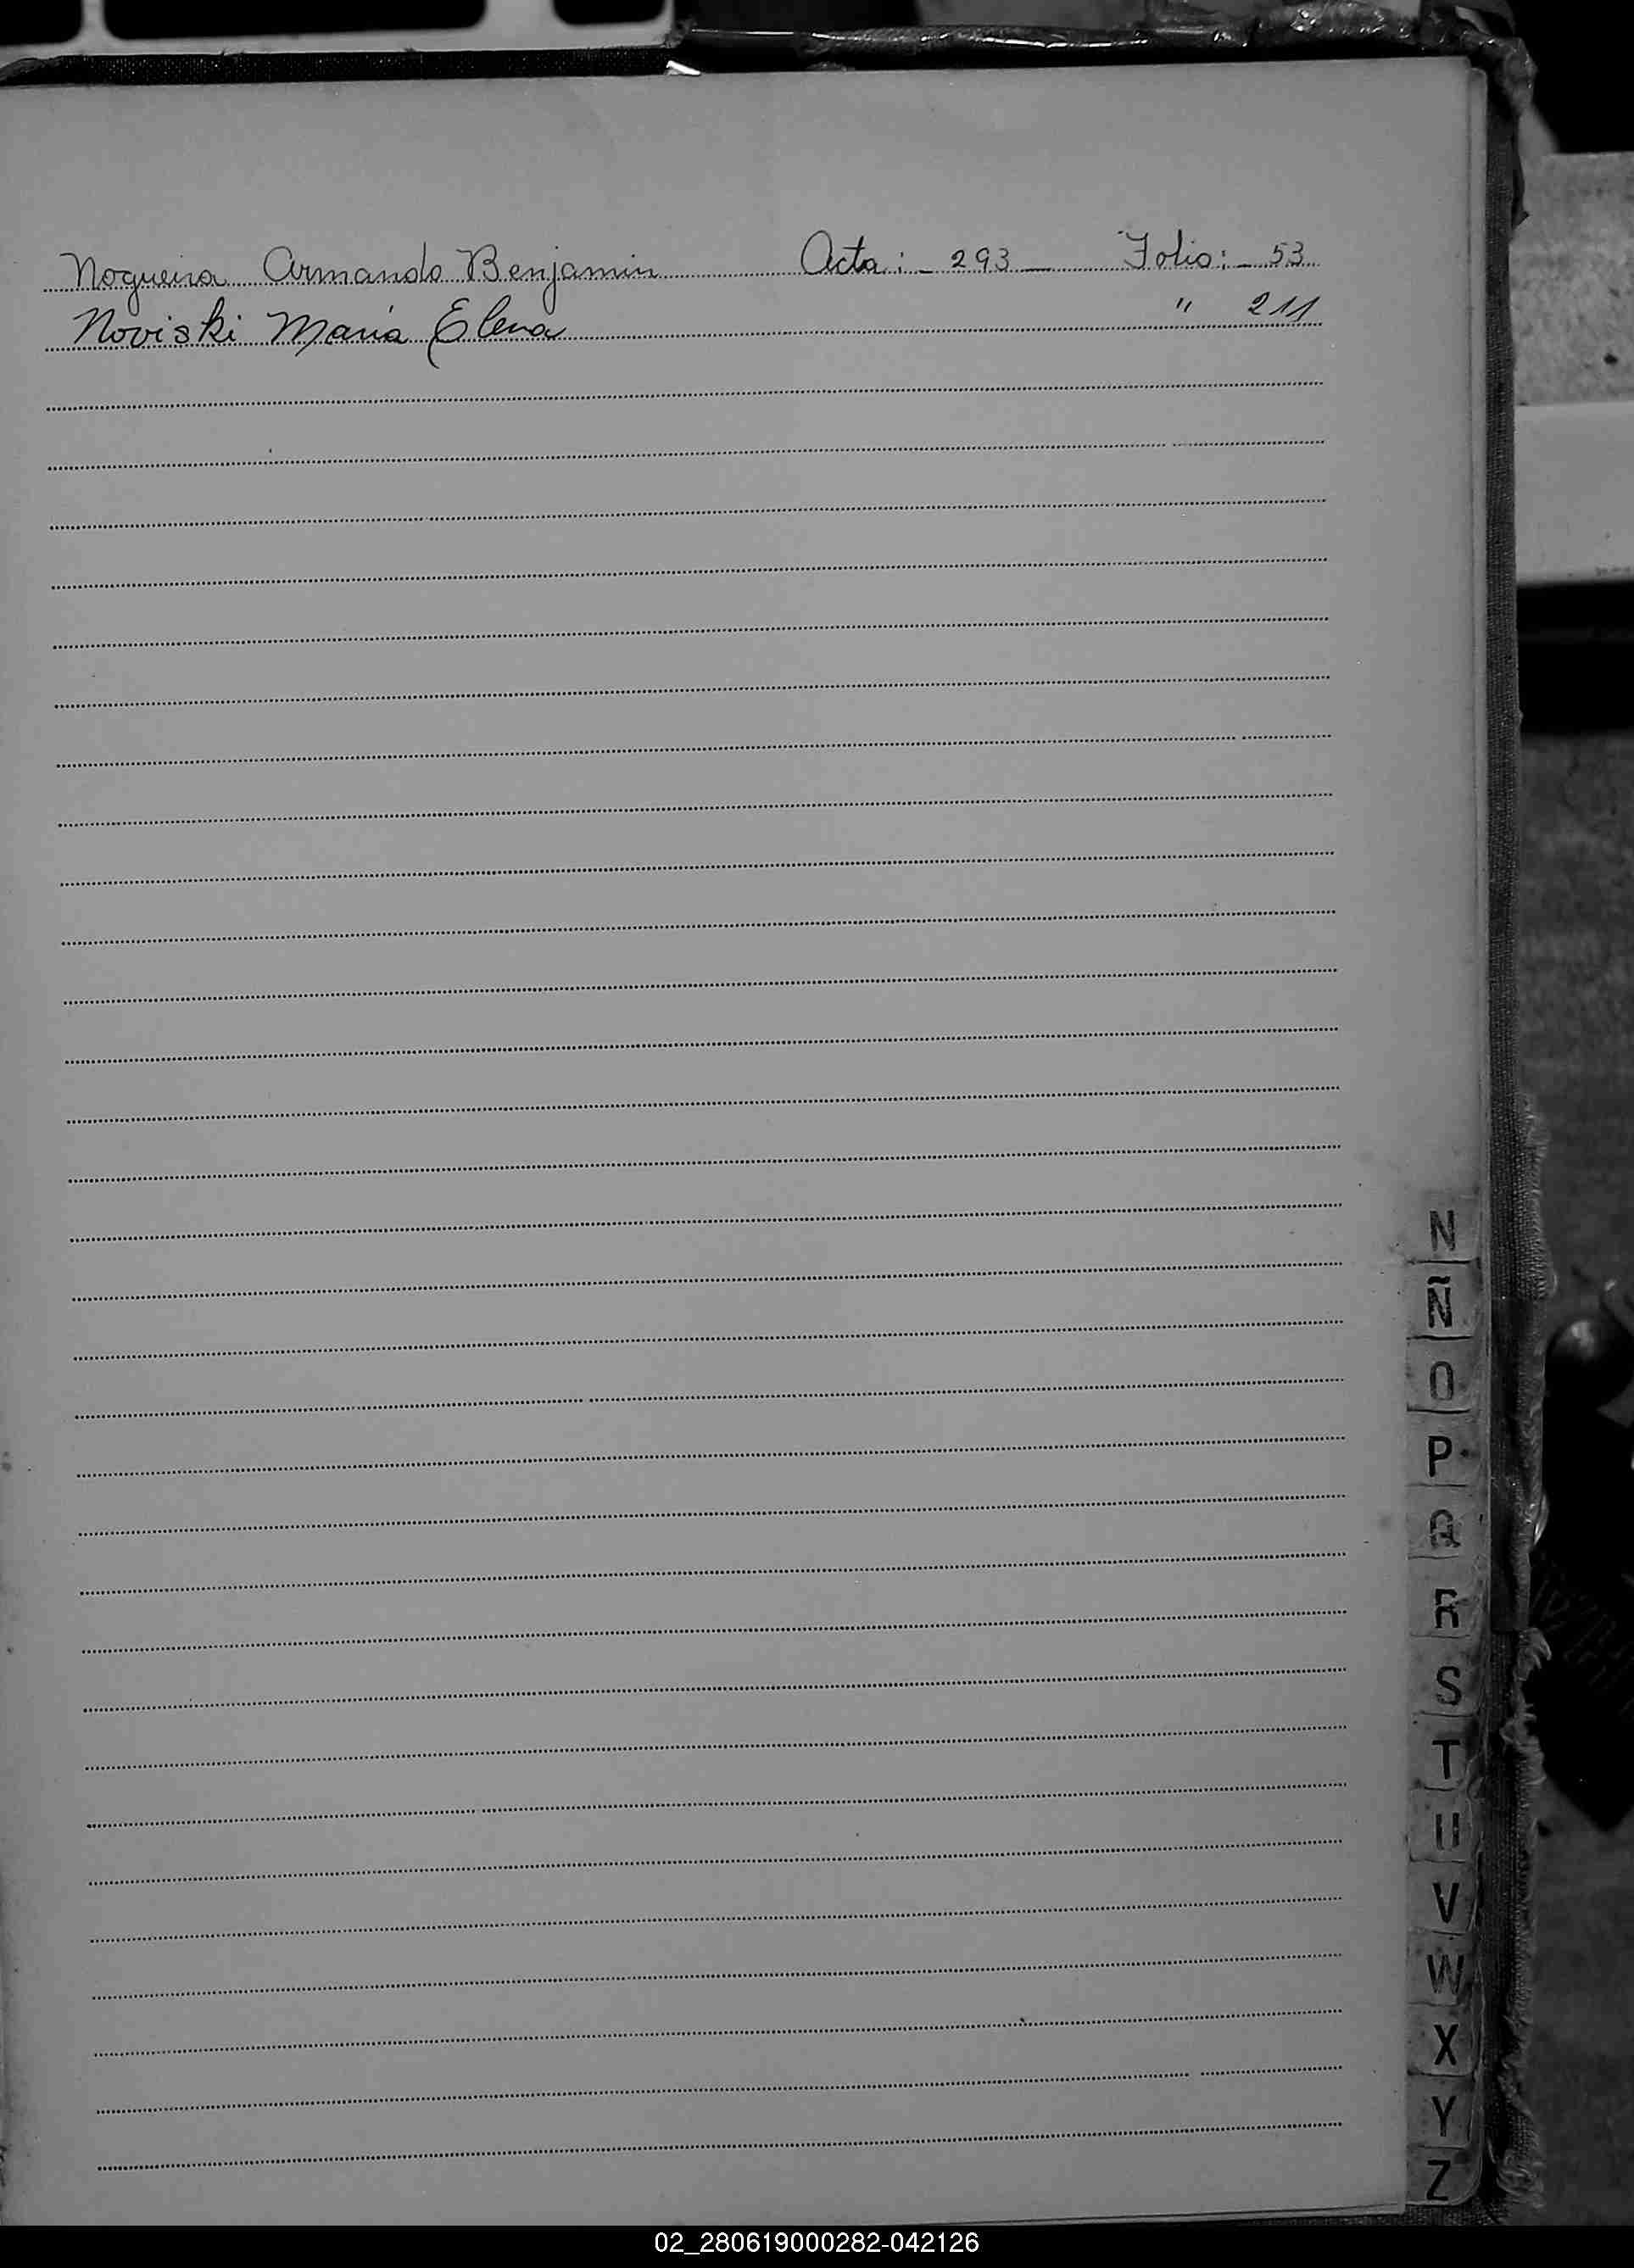 Nogueira Armando Benjamin Acta: - 293 - Folio: - 53
Noviski María Elena " 211
N
Ñ
O
P
Q
R
S
T
U
V
W
X
Y
Z
02_280619000282-042126